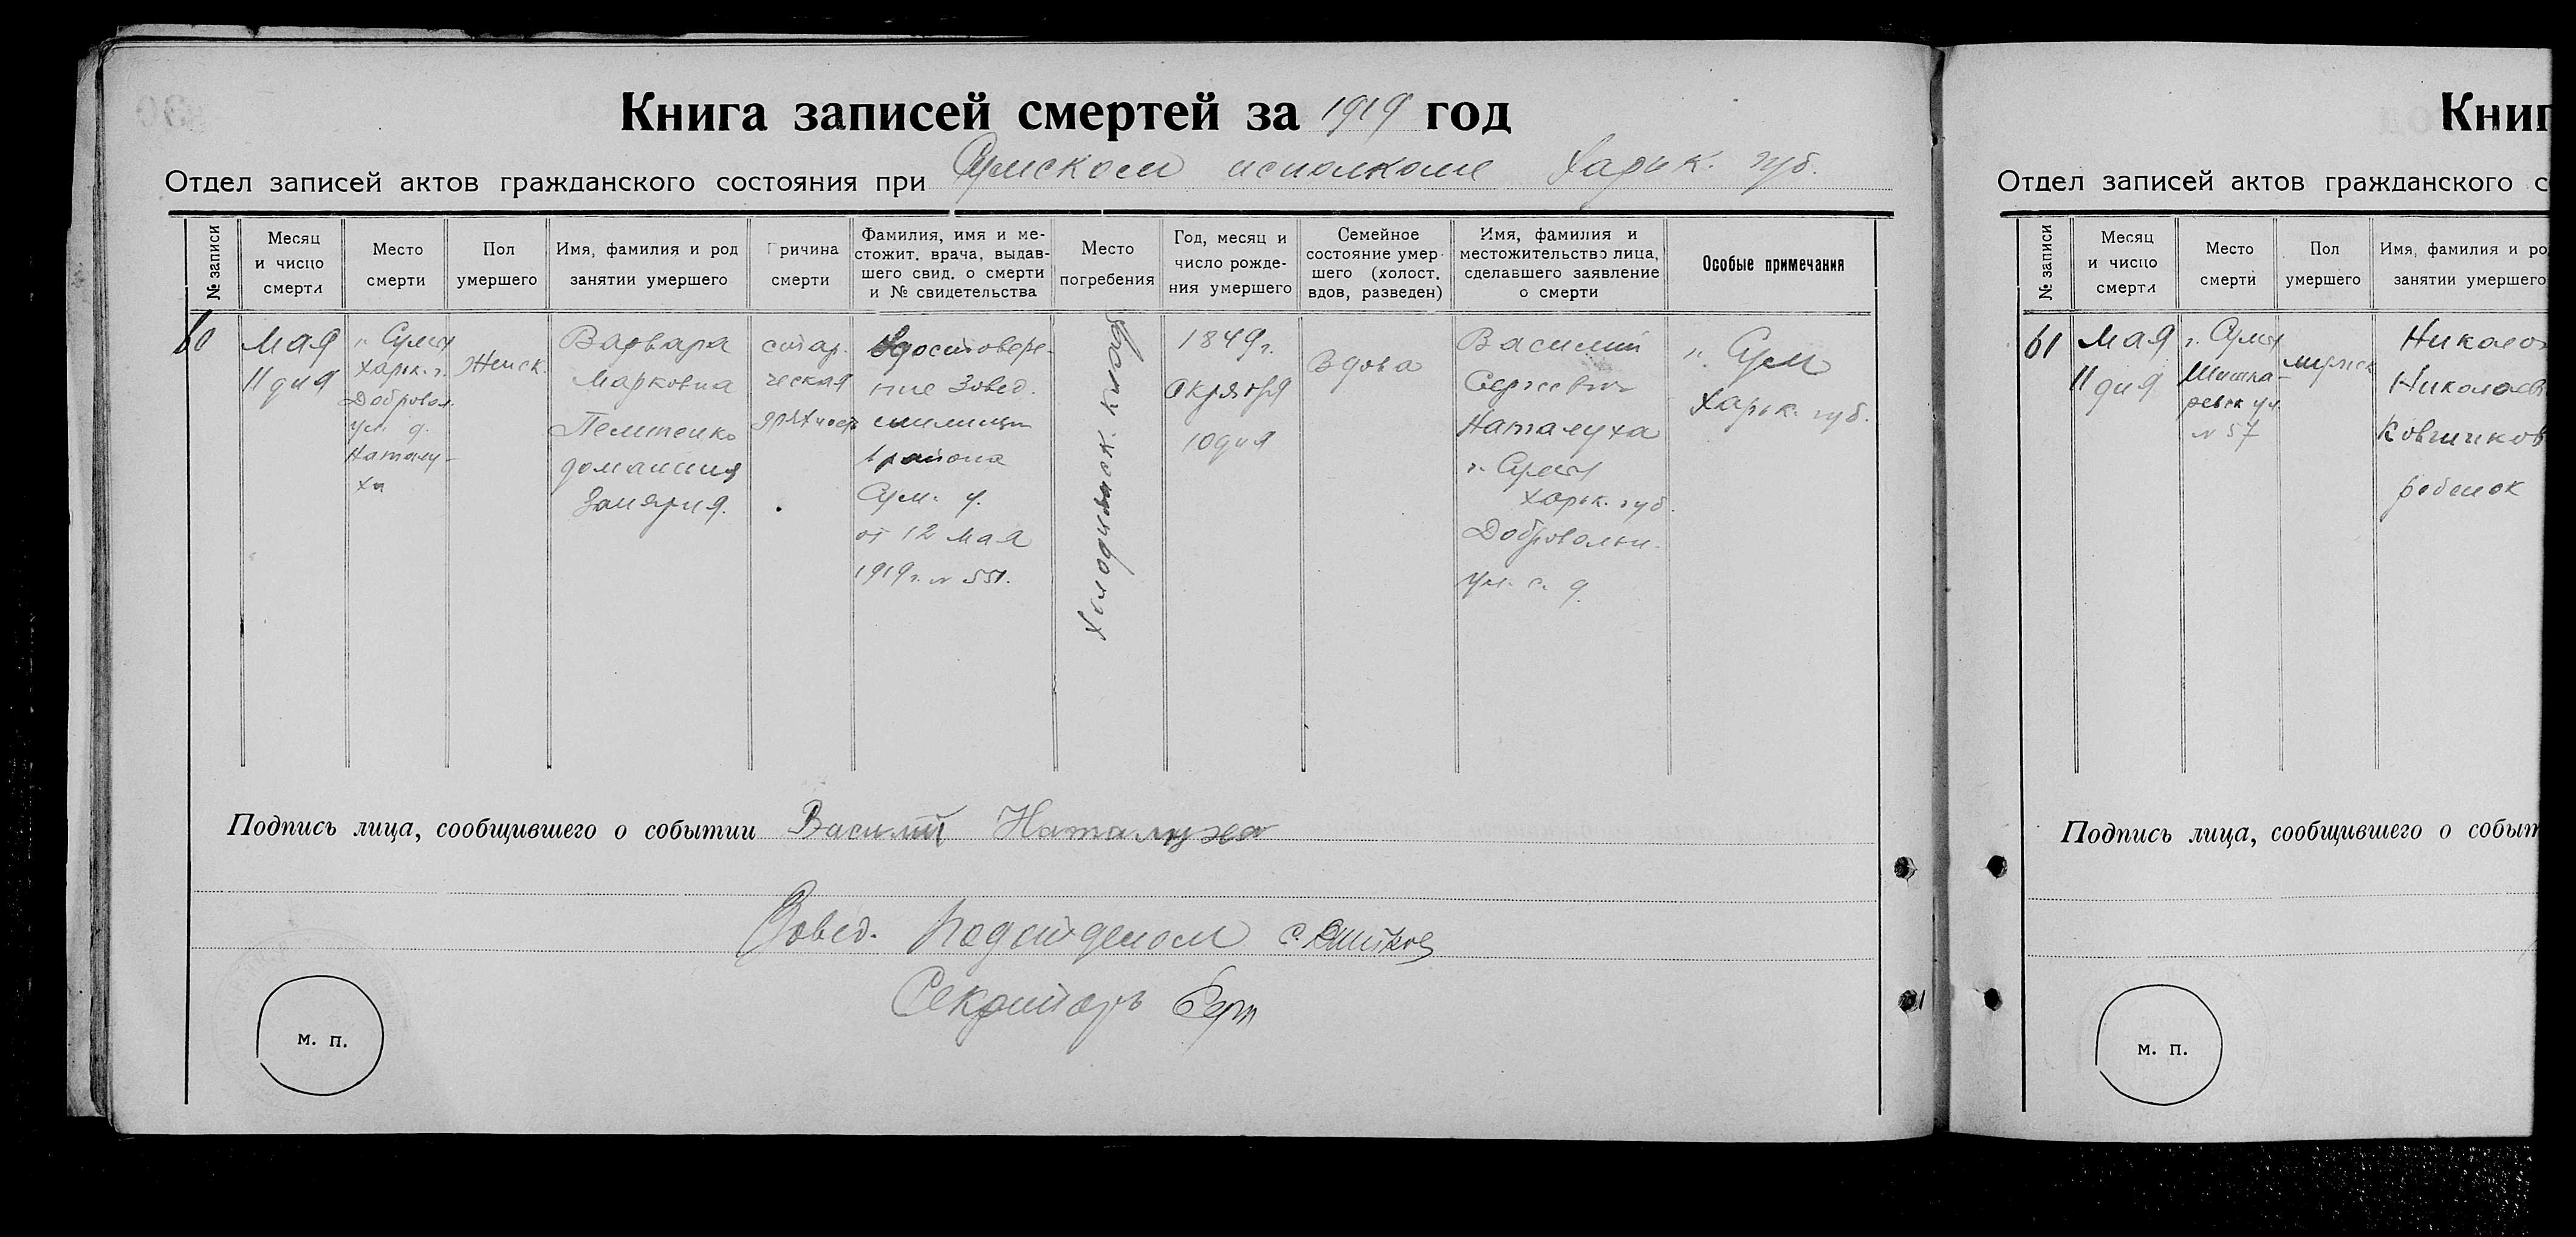 Книга записей смертей за 1919 год
Отдел записей актов гражданского состояния при Сумском исполкоме Харьк. губ.
№ записи
Месяц
и число
смерти
Место
смерти
Пол
умершего
Имя, фамилия и род
занятии умершего
Причина
смерти
Фамилия, имя и ме-
стожит. врача, выдав-
шего свид. о смерти
и № свидетельства
Место
погребения
Год, месяц и
число рожде-
ния умершего
Семейное
состояние умер-
шего (холост.
вдов, разведен)
Имя, фамилия и
местожительство лица,
сделавшего заявление
о смерти
Особые примечания
60
Мая
11 дня
г. Сумы
Харьк. г.
Добровол.
ул. д.
Наталу-
ха
Женск.
Варвара
Марковна
домашния
Занятия.
стар-
ческая
дряхлость
Удостовере-
ние Завед.
милиции
1 района
Сум. у.
от 12 мая
1919 г. № 551.
Холодянск. клад
1849 г.
Октября
10 дня
Вдова
Василий
Сергеевич
Наталуха
г. Сумы
Харьк. губ.
Добровольн.
ул. с. д.
г. Сум
Харьк. губ.
Подпись лица, сообщившего о событии Василий Наталуха
Завед. Подотделом
Секретарь
м. п.
Книг
Отдел записей актов гражданского с
№ записи
Месяц
и число
смерти
Место
смерти
Пол
умершего
Имя, фамилия и ро
занятии умершего
61
Мая
11 дня
г. Сумы
ул.
№ 57
мужск
Никола
Николаев
ребенок
Подпись лица, сообщившего о событ
м. п.